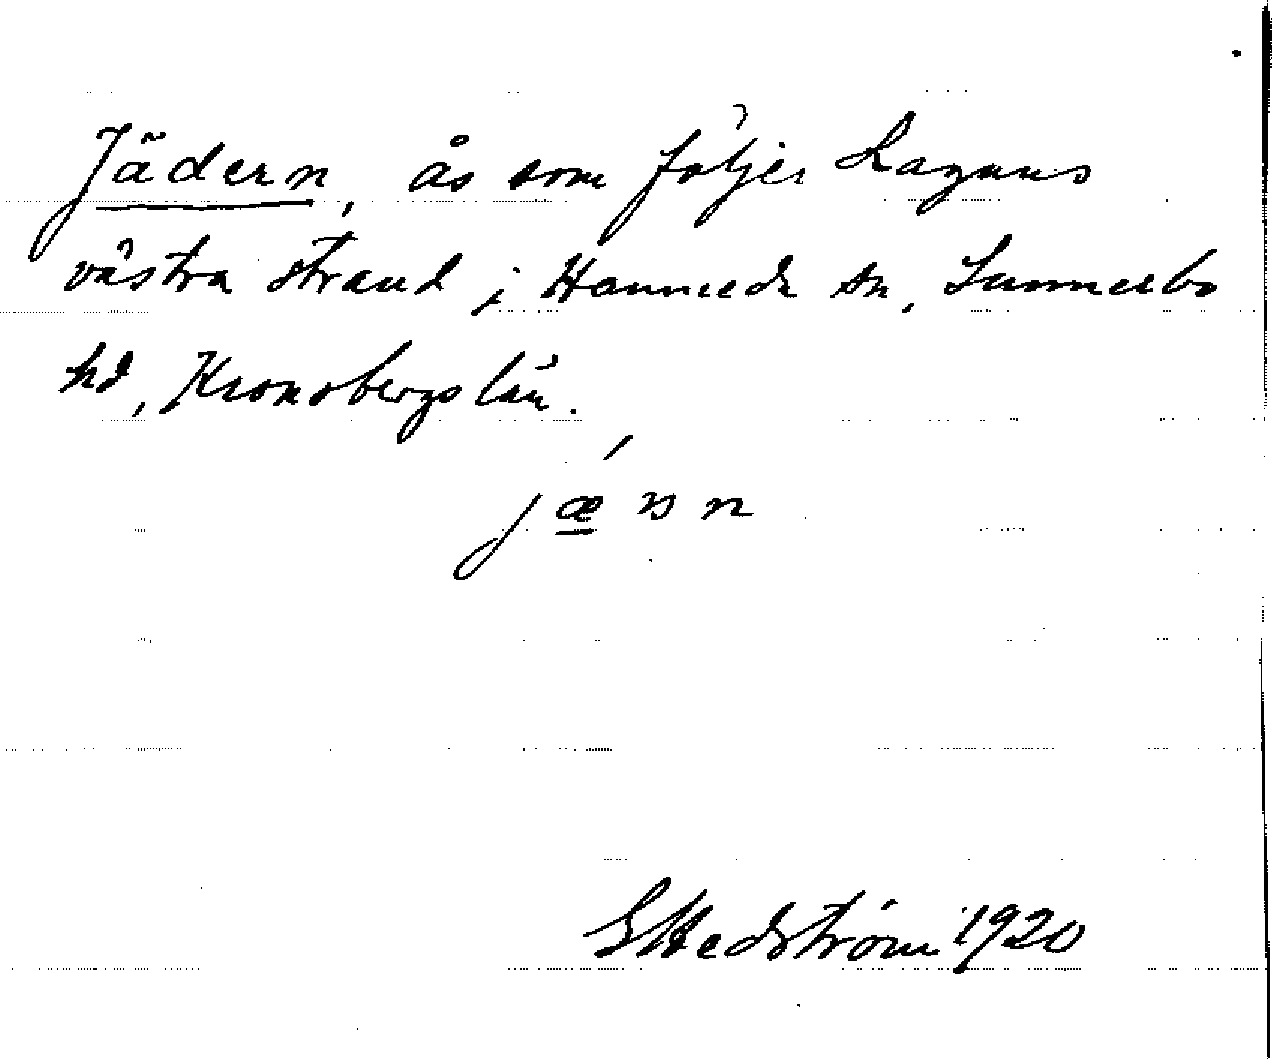 Jädern, ås som följer Lagans
västra strand i Hamneda sn, Sunnerbo
hd, Kronobergs län.
G Hedström 1920